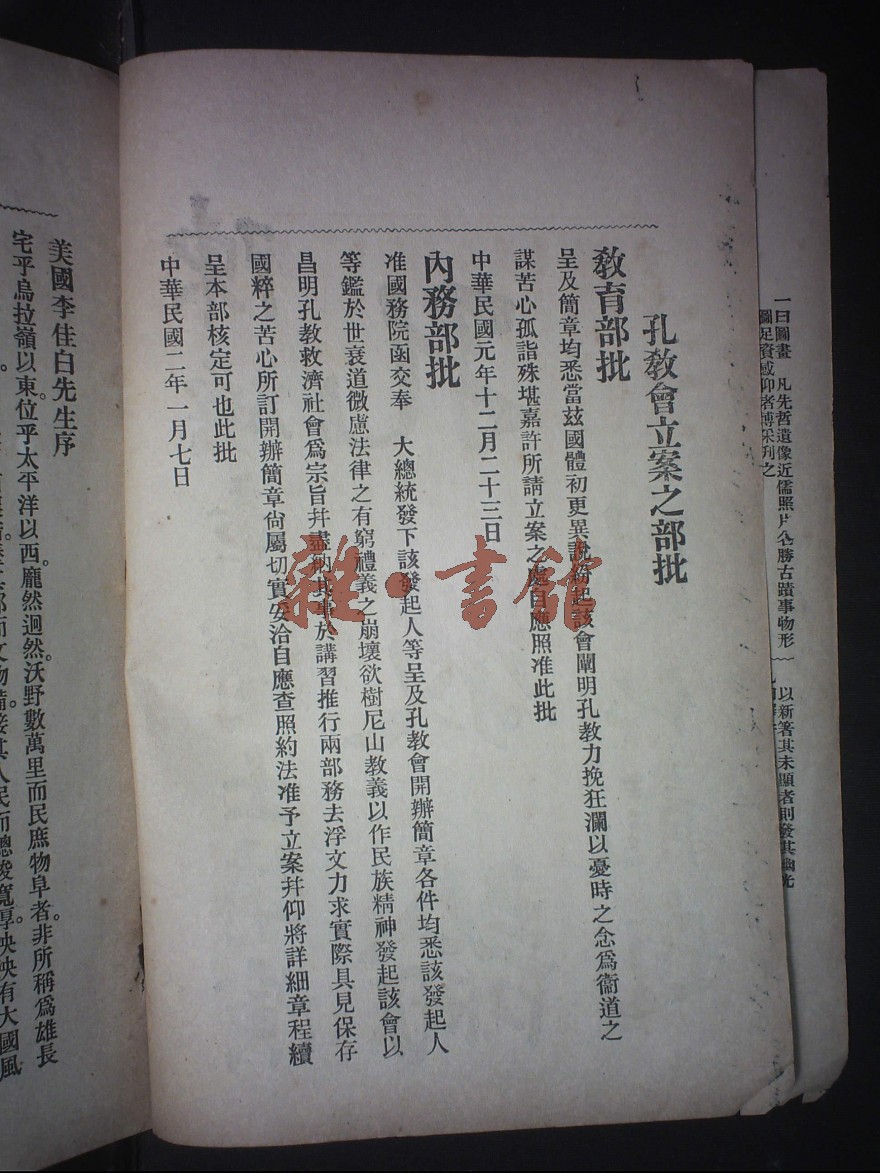 一曰圖畫　凡先哲遺像近儒照片名勝古蹟事物形
圖足資感仰者博采列之
以新著其未顯者則發其幽光
孔教會立案之部批
教育部批
呈及簡章均悉當茲國體初更異說紛起該會闡明孔教力挽狂瀾以憂時之念爲衞道之
謀苦心孤詣殊堪嘉許所請立案之處自應照准此批
中華民國元年十二月二十三日
內務部批
准國務院函交奉　大總統發下該發起人等呈及孔教會開辦簡章各件均悉該發起人
等鑑於世衰道微慮法律之有窮禮義之崩壞欲樹尼山教義以作民族精神發起該會以
昌明孔教救濟社會爲宗旨幷盡納民事於講習推行兩部務去浮文力求實際具見保存
國粹之苦心所訂開辦簡章尙屬切實妥洽自應查照約法准予立案幷仰將詳細章程續
呈本部核定可也此批
中華民國二年一月七日
美國李佳白先生序
宅乎烏拉嶺以東。位乎太平洋以西。龐然迥然。沃野數萬里而民庶物阜者。非所稱爲雄長
而文物備。接其人民而總凌寬厚。泱泱有大國風
雜·書舘